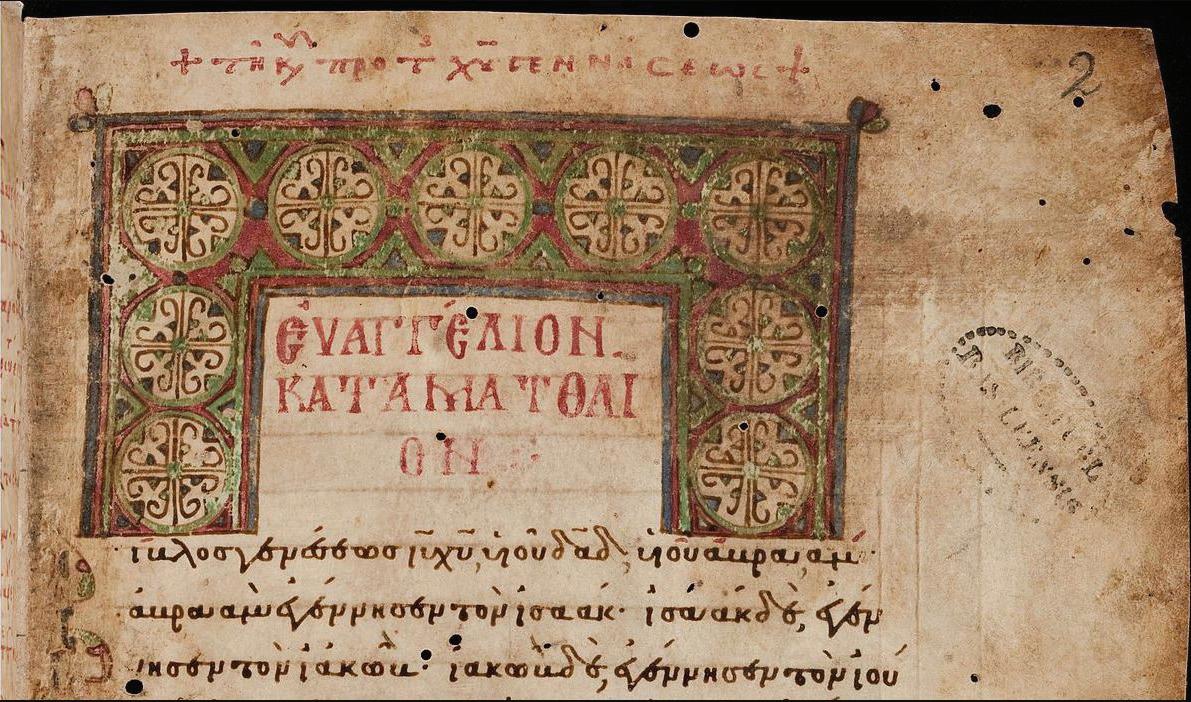 + τῆ κυ προ τ χυ γεννησεως +
2
ἐυαγγέλιον
κατα ματθαι
ον
ίβλος γενέσεως ἰῦ χῦ, υἱοῦ δᾱδ, υἱοῦ ἀβραάμ·
ἀβραὰμ ἐγέννησεν τὸν ἰσαάκ· ἰσαὰκ δὲ, ἐγέν
νησεν τὸν ἰακώβ· ἰακὼβ δὲ, ἐγέννησεν τὸν ἰού